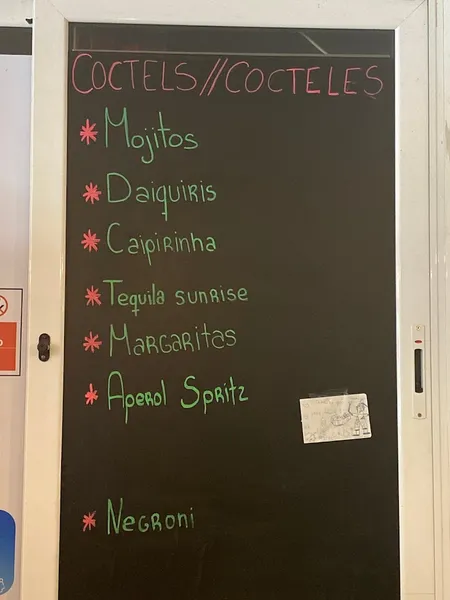 COCTELS//COCTELES
* Mojitos
* Daiquiris
* Caipirinha
* Tequila sunrise
* Margaritas
* Aperol Spritz
* Negroni